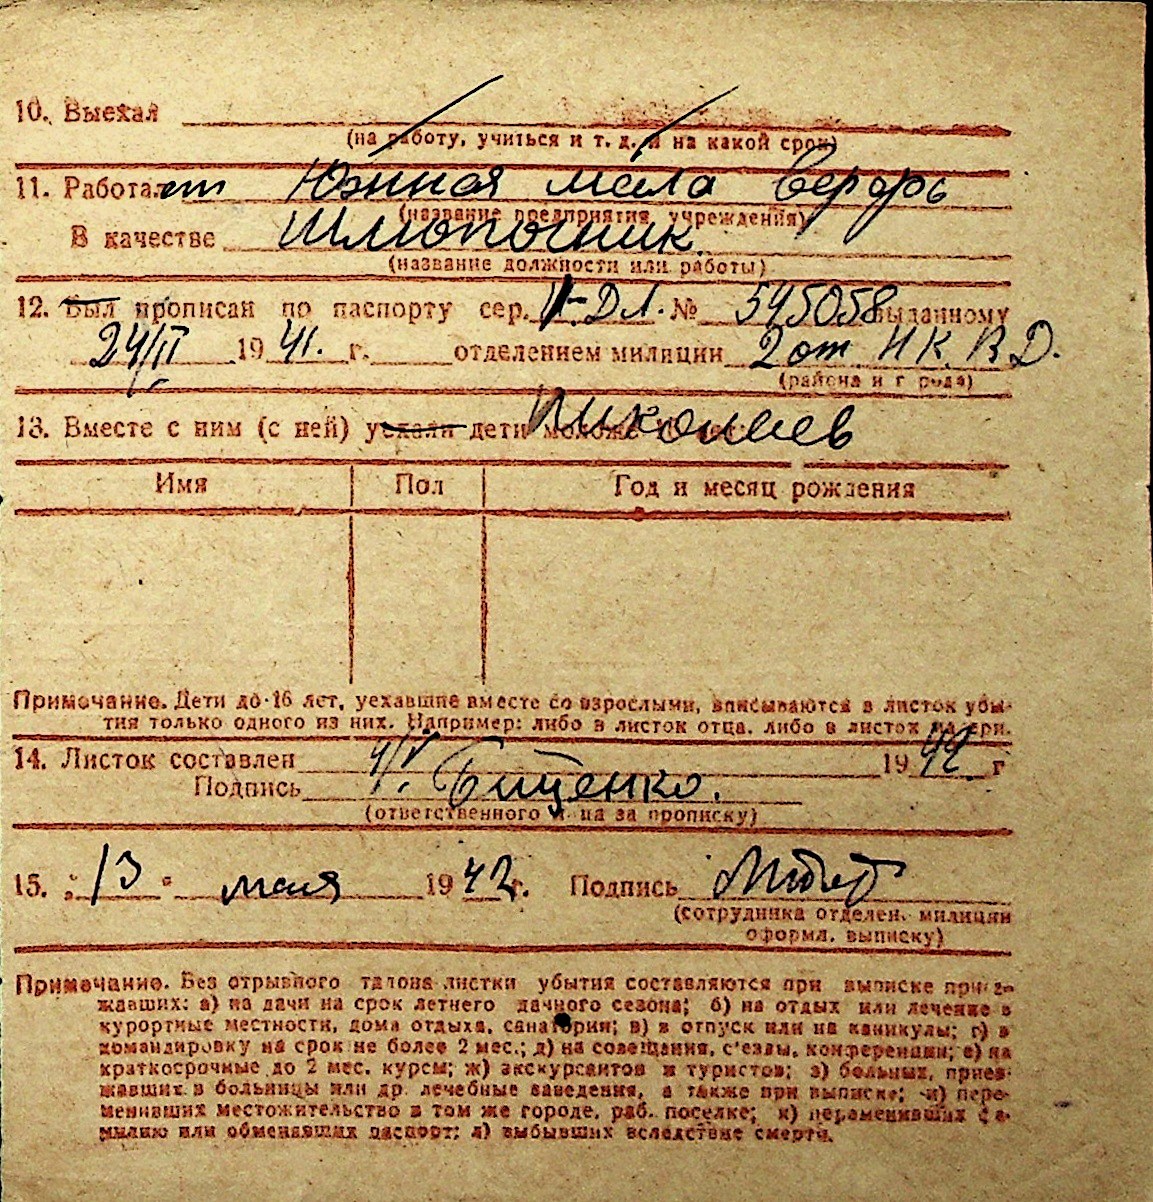 10. Выехал
(на работу, учиться и т. д. и на какой срок)
11. Работает Южная мала верфь
(название предприятия, учреждения)
В качестве Шлюпочник
(название должности или работы)
12. Был прописан по паспорту сер. ДЛ. № 545058 выданному
24/II 19 41. г. отделением милиции 2 от Н К. В Д.
(района и города)
13. Вместе с ним (с ней) уехали дети моложе Николаев
Имя Пол Год и месяц рождения
Примечание. Дети до 16 лет, уехавшие вместе со взрослыми, вписываются в листок убы-
тия только одного из них. Например: либо в листок отца, либо в листок матери.
14. Листок составлен 4/V 1942 г
Подпись Бищенко.
(ответственного лица за прописку)
15. "13" мая 1942 г. Подпись
(сотрудника отделен. милиции
оформл. выписку)
Примечание. Без отрывного талона листки убытия составляются при выписке приез-
жавших: а) на дачи на срок летнего дачного сезона; б) на отдых или лечение в
курортные местности, дома отдыха, санатории; в) в отпуск или на каникулы; г) в
командировку на срок не более 2 мес.; д) на совещания, с'езды, конференции; е) на
краткосрочные до 2 мес. курсы; ж) экскурсантов и туристов; з) больных, приез-
жавших в больницы или др. лечебные заведения, а также при выписке; и) пере-
менивших местожительство в том же городе, раб. поселке; к) переменивших фа-
милию или обменявших паспорт; л) выбывших вследствие смерти.